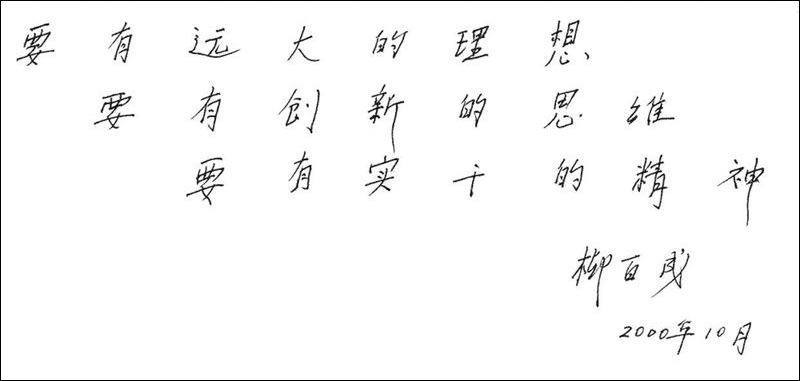 要有远大的理想
要有创新的思维
要有实干的精神
柳百成
2000年10月